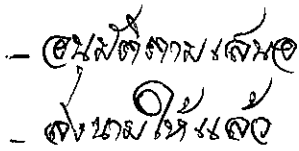 - อนุมัติตามเสนอ
- ลงนามให้แล้ว